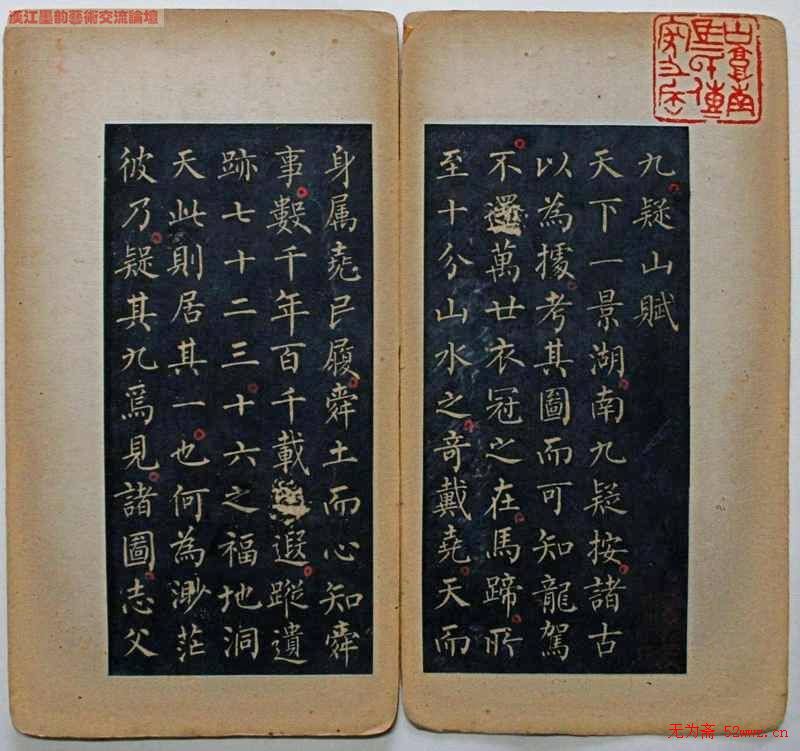 漢江墨韵藝術交流論壇
九疑山賦
天下一景湖南九疑按諸古
以為據考其圖而可知龍駕
不還萬廿衣冠之在馬蹄所
至十分山水之奇戴堯天而
身属堯巳履舜土而心知舜
事數千年百千載遐蹤遺
跡七十二三十六之福地洞
天此則居其一也何為渺茫
彼乃疑其九焉見諸圖志父
无为斋 52wwz.cn